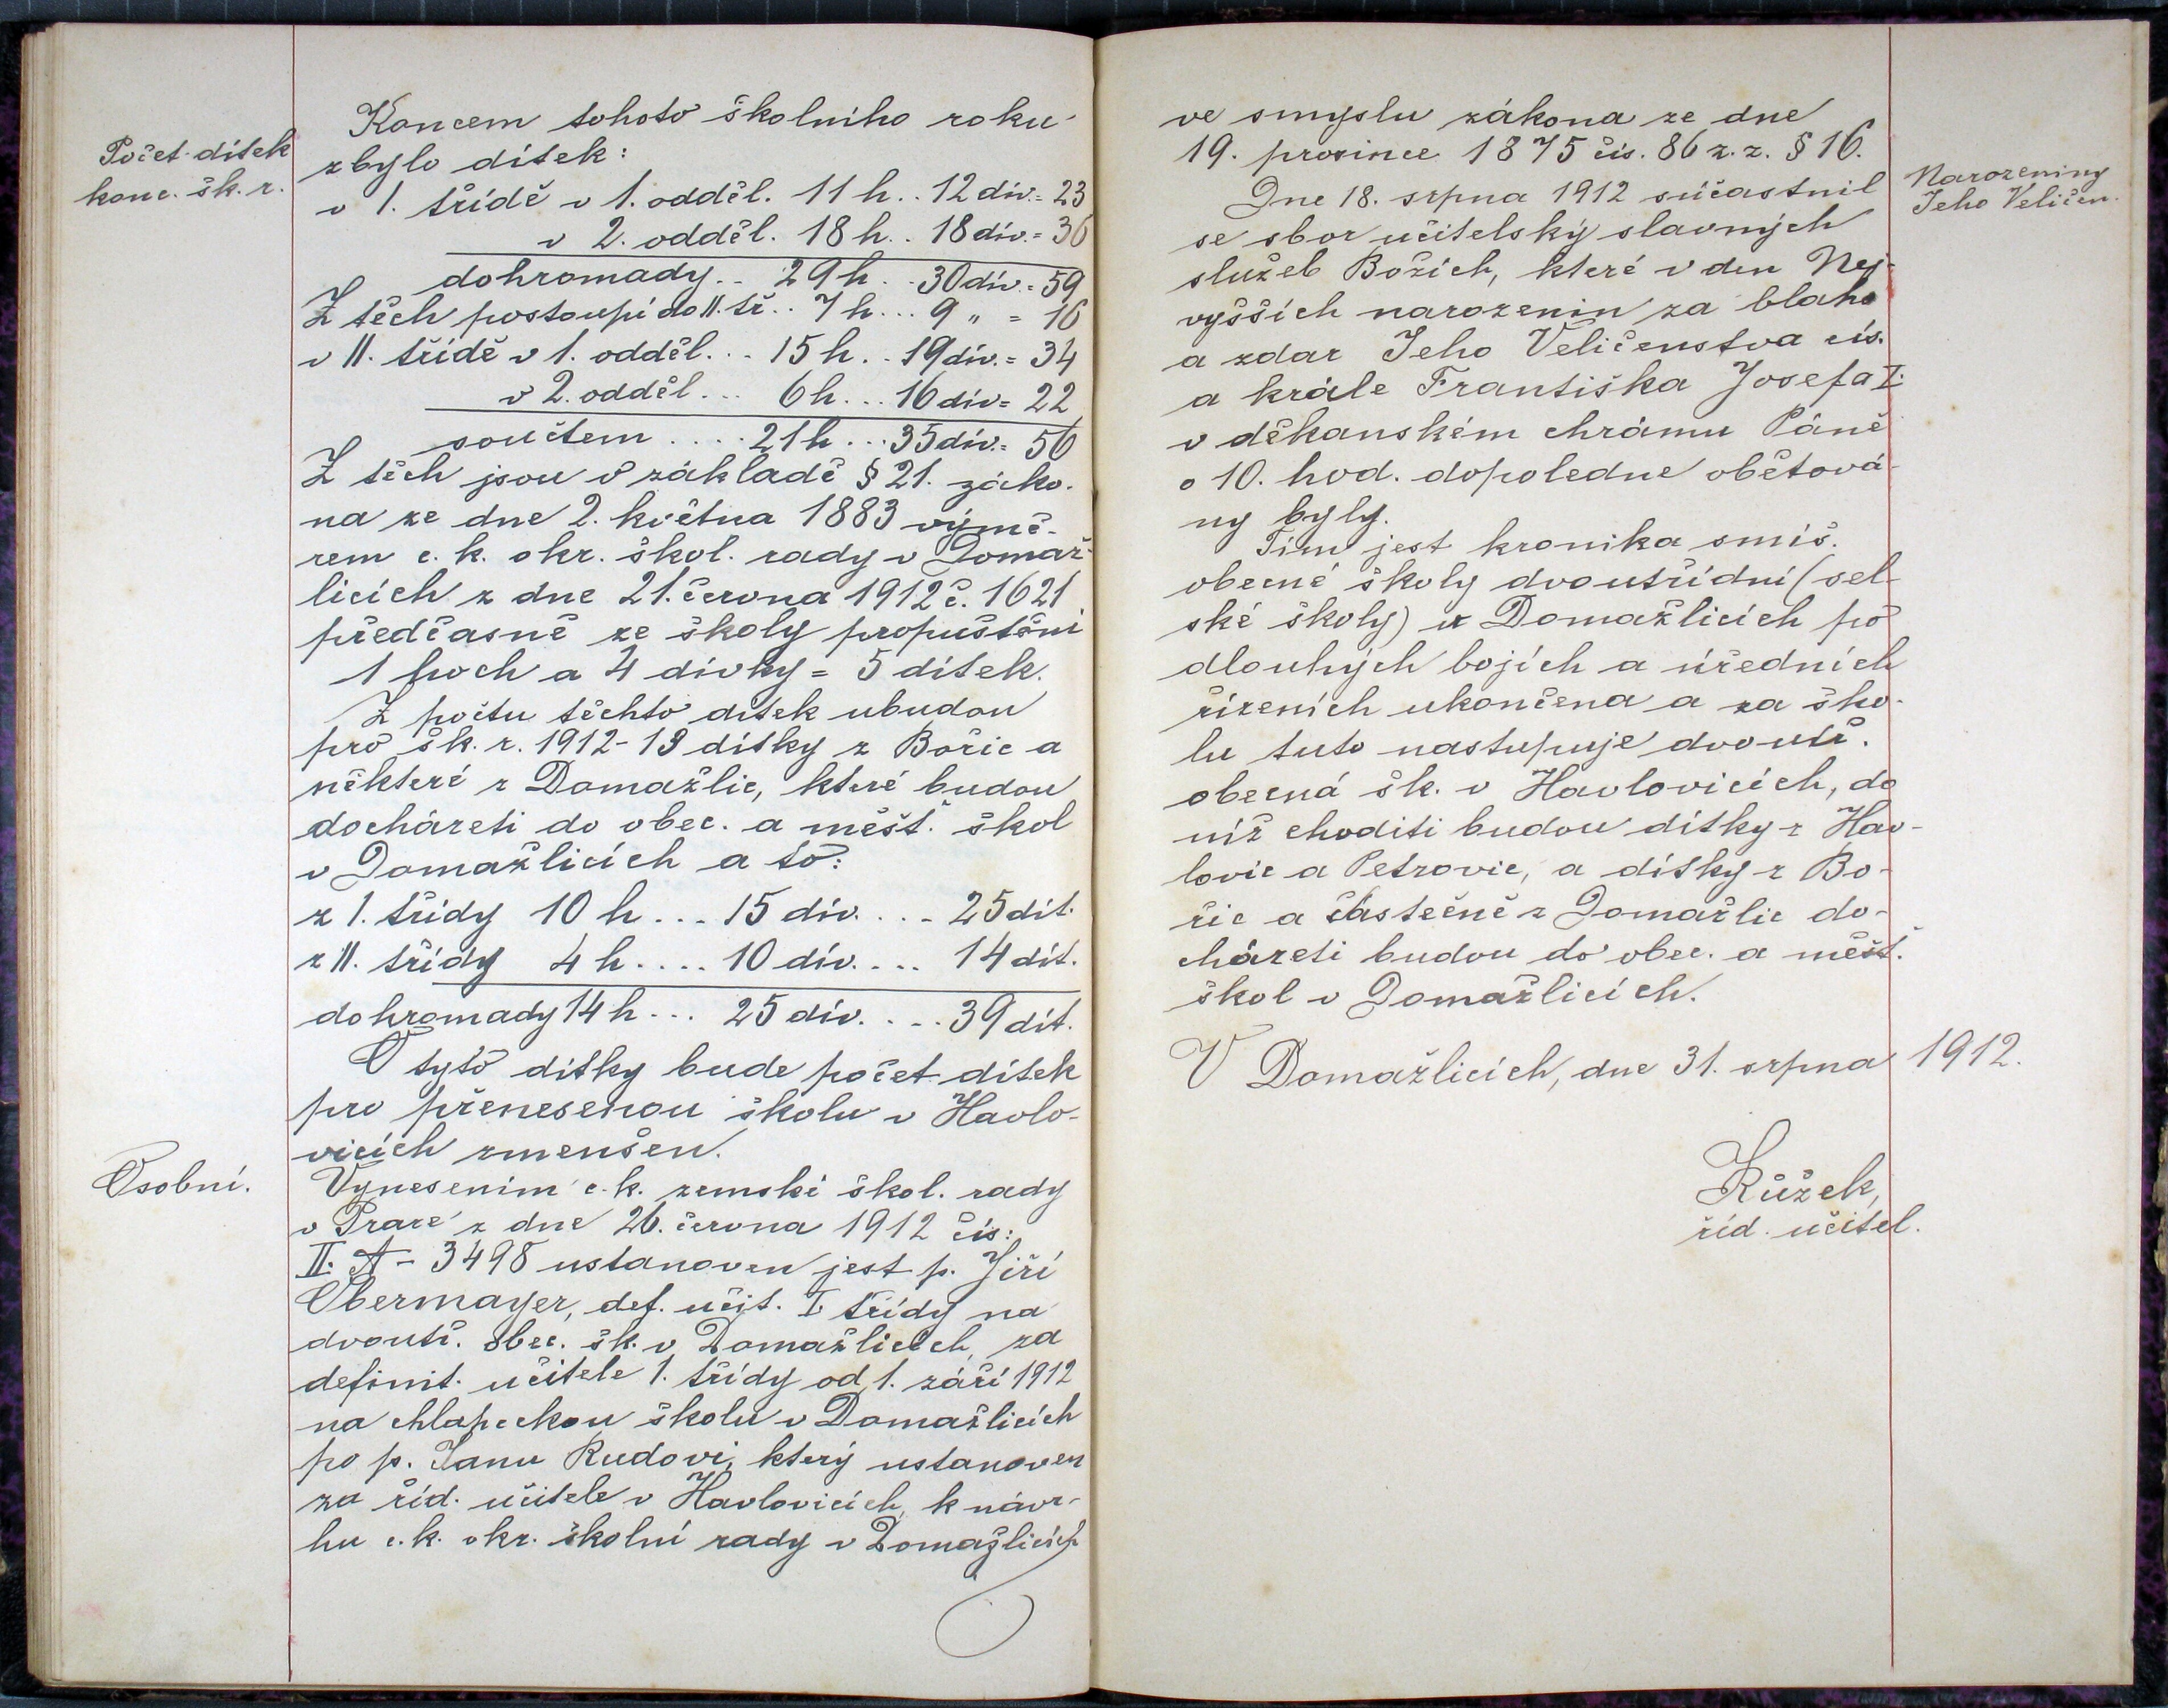 Počet dítek
konc. šk. r.
Koncem tohoto školního roku
zbylo dítek:
v I. třídě v 1. odděl. 11 h. . 12 dív. = 23
v 2. odděl. 18 h. . 18 dív. = 36
dohromady. . 29 h. . 30 dív. = 59
Z těch postoupí do II. tř. . 7 h. . . 9 „ = 16
v II. třídě v 1. odděl. . . 15 h. . 19 dív. = 34
v 2. odděl. . . 6 h. . . 16 dív = 22
součtem . . . . 21 h. . . 35 dív. = 56
Z těch jsou v základě § 21. záko-
na ze dne 2. května 1883 výmě-
rem c. k. okr. škol. rady v Domaž-
licích z dne 21. června 1912 č. 1621
předčasně ze školy propuštěni
1 hoch a 4 dívky = 5 dítek.
Z počtu těchto dítek ubudou
pro šk. r. 1912-13 dítky z Bořic a
některé z Domažlic, které budou
docházeti do obec. a měšť. škol
v Domažlicích a to:
z I. třídy 10 h . . . 15 dív. . . . 25 dít.
z II. třídy 4 h . . . . 10 dív. . . . 14 dít.
dohromady 14 h . . . 25 dív. . . . 39 dít.
O tyto dítky bude počet dítek
pro přenesenou školu v Havlo-
vicích zmenšen.
Osobní.
Vynesením c. k. zemské škol. rady
v Praze z dne 26. června 1912 čís:
II. A - 3498 ustanoven jest p. Jiří
Obermayer, def. učit. I. třídy na
dvoutř. obec. šk. v Domažlicích, za
definit. učitele 1. třídy od 1. září 1912
na chlapeckou školu v Domažlicích
po p. Janu Rudovi, který ustanoven
za říd. učitele v Havlovicích, k návr-
hu c. k. okr. školní rady v Domažlicích
ve smyslu zákona ze dne
19. prosince 1875 čís. 86 z. z. § 16.
Narozeniny
Jeho Veličen.
Dne 18. srpna 1912 súčastnil
se sbor učitelský slavných
služeb Božích, které v den Nej-
vyšších narozenin za blaho
a zdar Jeho Veličenstva cís.
a krále Františka Josefa I.
v děkanském chrámu Páně
o 10. hod. dopoledne obětová-
ny byly.
Tím jest kronika smíš.
obecné školy dvoutřídní (sel-
ské školy) v Domažlicích po
dlouhých bojích a úředních
řízeních ukončena a za ško-
lu tuto nastupuje dvoutř.
obecná šk. v Havlovicích, do
níž choditi budou dítky z Hav-
lovic a Petrovic, a dítky z Bo-
řic a částečně z Domažlic do-
cházeti budou do obec. a měšť.
škol v Domažlicích.
V Domažlicích, dne 31. srpna 1912.
Růžek,
říd. učitel.